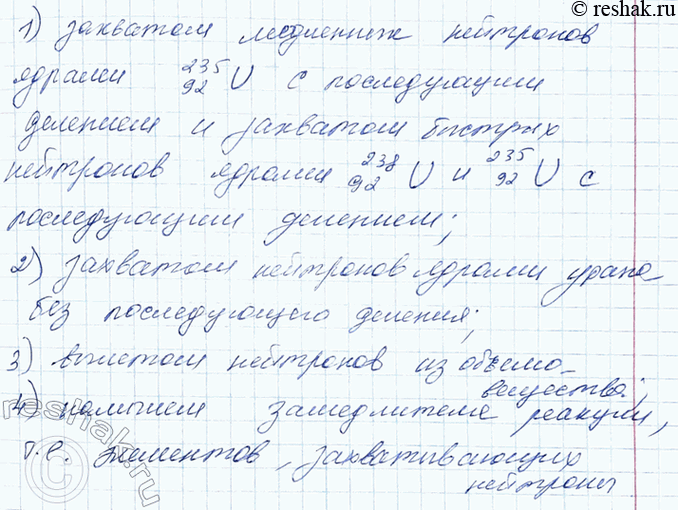 © reshak.ru
1) захватом медленных нейтронов
ядрами ²³⁵₉₂U с последующим
делением и захватом быстрых
нейтронов ядрами ²³⁸₉₂U и ²³⁵₉₂U с
последующим делением;
2) захватом нейтронов ядрами урана
без последующего деления;
3) вылетом нейтронов из объема
вещества;
4) наличием замедлителей реакции,
т.е. элементов, захватывающих
нейтроны
reshak.ru
©